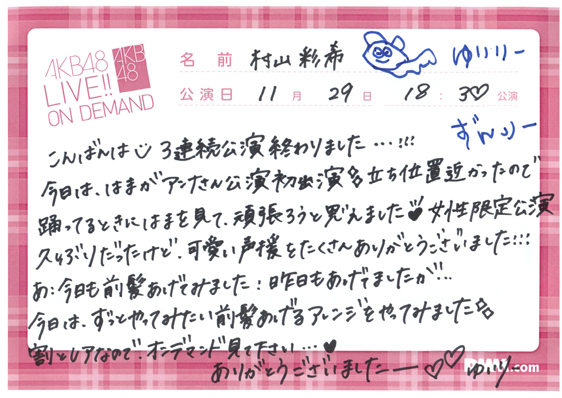 AKB48
LIVE!!
ON DEMAND
AKB
48
名前 村山彩希 ゆいりー
公演日 11月 29日 18:30 公演
ずんりー
こんばんは 3連続公演終わりました…!!!
今日は、はまがアンナさん公演初出演 立ち位置近かったので
踊ってるときにはまを見て、頑張ろうと思えました♥女性限定公演
久々ぶりだったけど、可愛い声援をたくさんありがとうございました!!!
あ:今日も前髪あげてみました!昨日もあげてましたが…
今日は、ずっとやってみたい前髪あげるアレンジをやってみました
割とレアなので、オンデマンド見て下さい…♥
ありがとうございましたー♡♡ゆいり
DMM.com